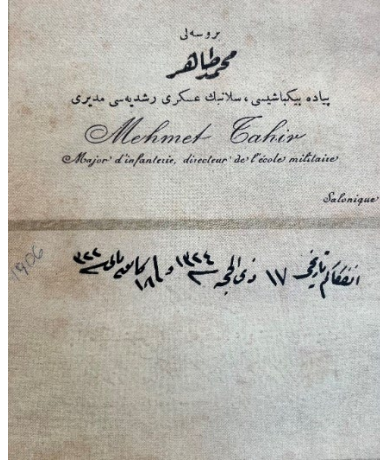 بروسه‌لی
محمد طاهر
پیاده بیکباشیسی، سلانیك عسکری رشدیه‌سی مدیری
Mehmet Tahir
Major d'infanterie, directeur de l'école militaire
Salonique
انفكاكم تاریخی ١٧ ذی الحجه ١٣٢٤ و ١٨ كانون ثانی ٣٢٢
1906